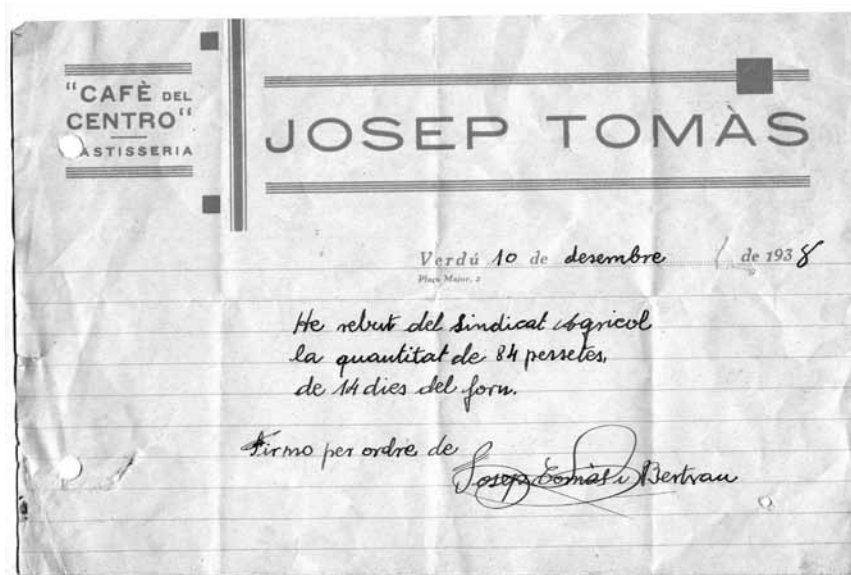 "CAFÈ DEL
CENTRO"
PASTISSERIA
JOSEP TOMÀS
Verdú 10 de desembre de 1938
Plaça Major, 2
He rebut del Sindicat Agricol
la quantitat de 84 pessetes,
de 14 dies del forn.
Firmo per ordre de
Josep Tomàs i Bertran